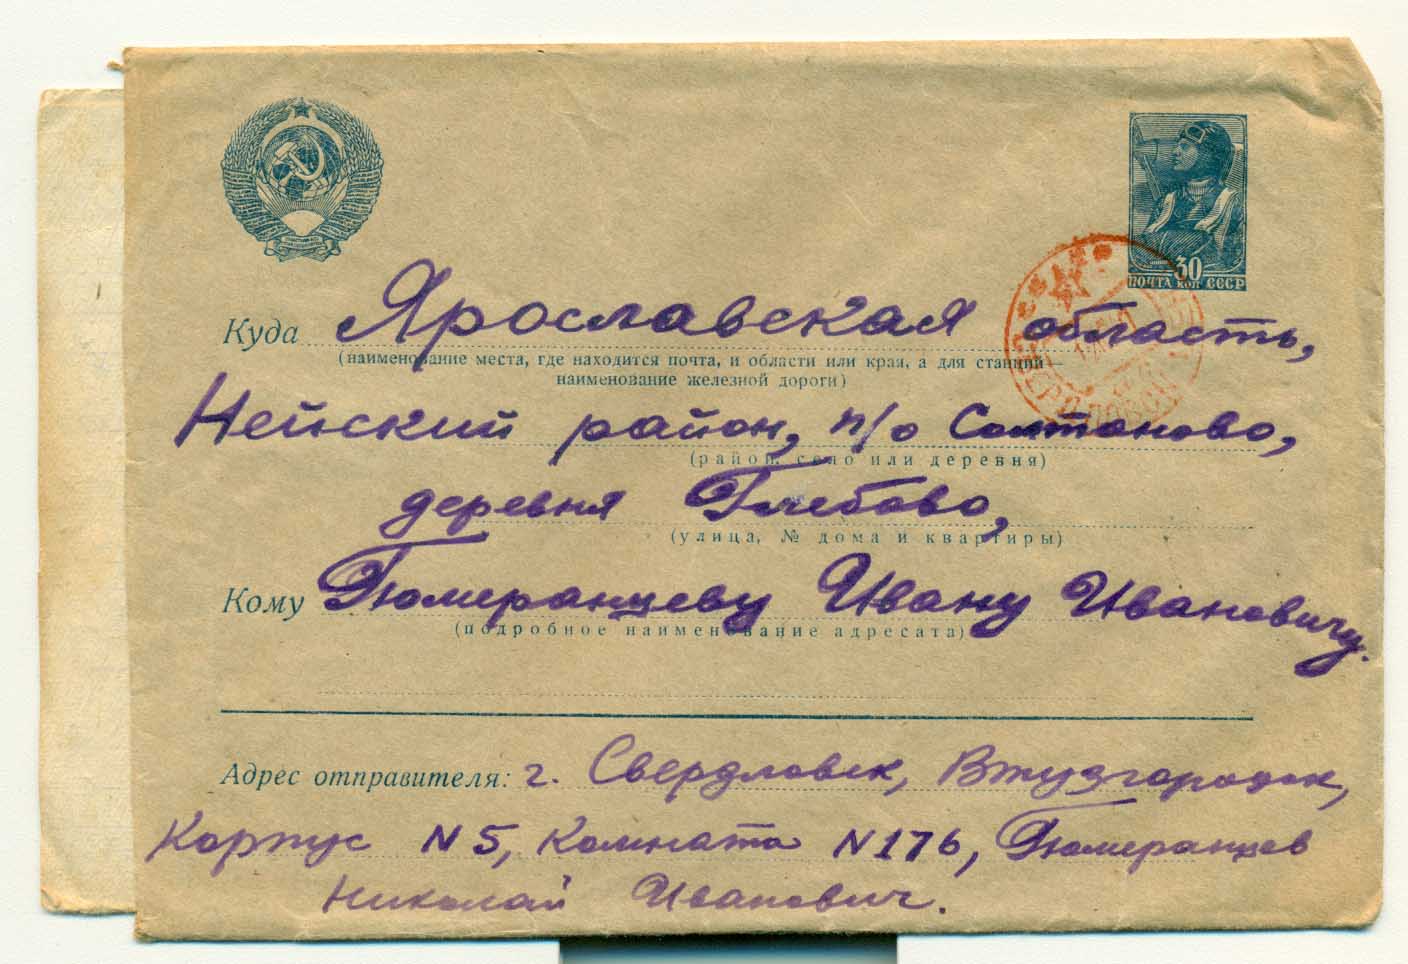 30
ПОЧТА КОП СССР
Куда Ярославская область,
(наименование места, где находится почта, и области или края, а для станций—
наименование железной дороги)
Нейский район, п/о Солтаново,
(район, село или деревня)
деревня Глебово,
(улица, № дома и квартиры)
Кому Гюмеранцеву Ивану Ивановичу.
(подробное наименование адресата)
Адрес отправителя: г. Свердловск, Втузгородок,
Корпус N 5, Комната N 176, Гюмеранцев
Николай Иванович.